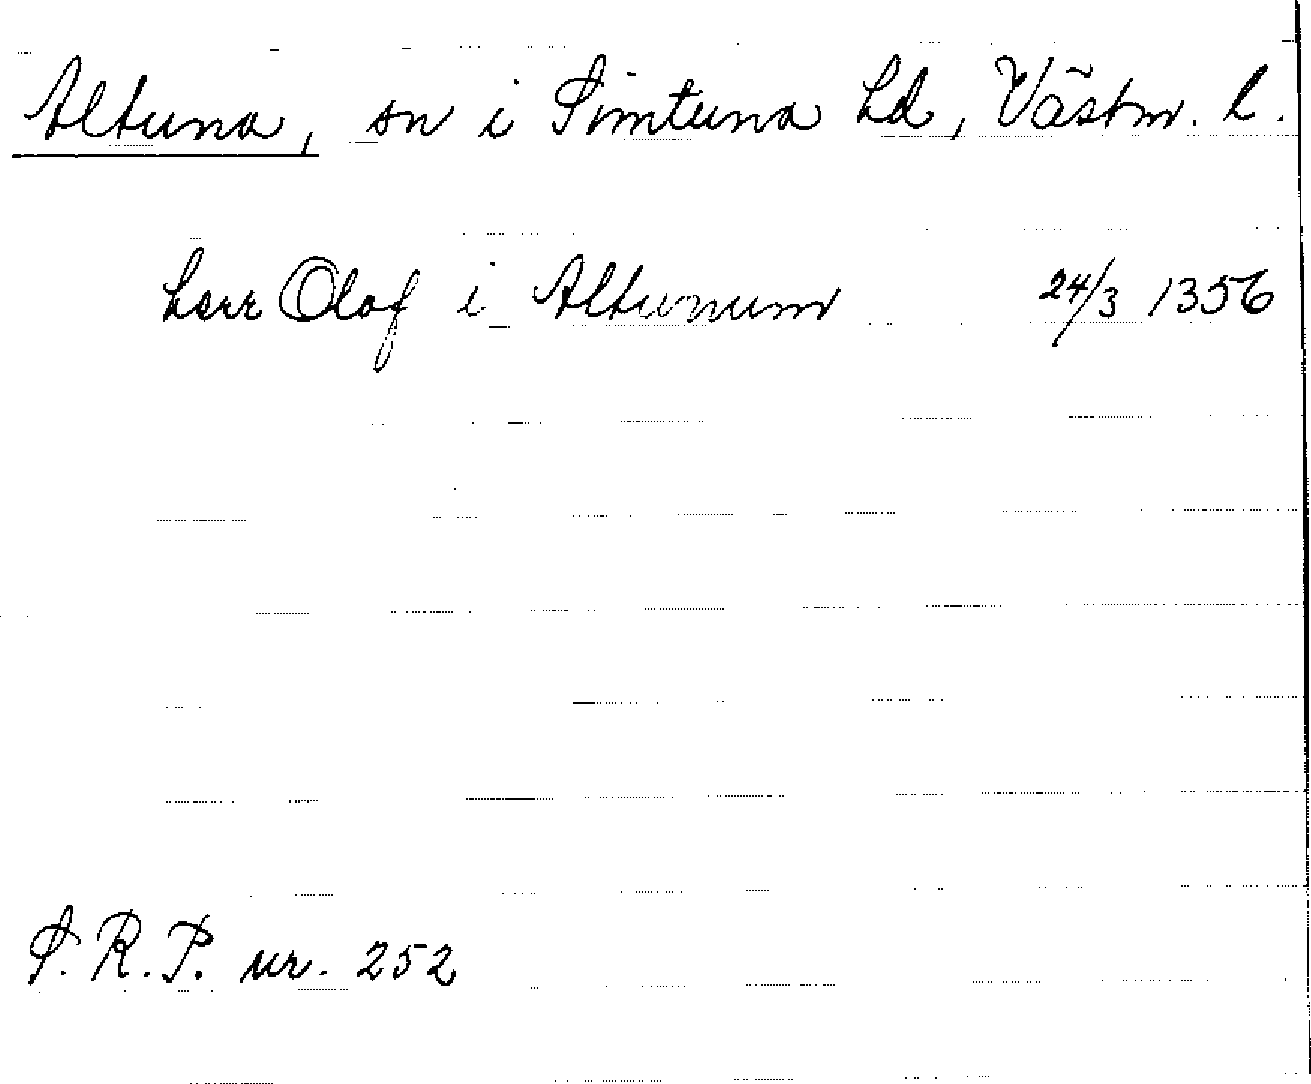 Altuna, sn i Simtuna hd, Västm. l.
herr Olof i Altunum 24/3 1356
S. R. P. nr. 252